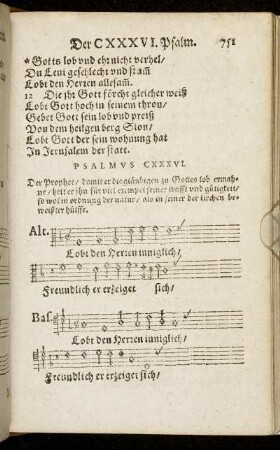 Der CXXXVI. Psalm. 751
* Gotts lob vnd ehr nicht verhel/
Du Leui geschlecht vnd stam̃
Lobt den Herren allesam̃.
12 Die jhr Gott förcht gleicher weiß
Lobt Gott hoch in seinem thron/
Gebet Gott sein lob vnd preiß
Von dem heilgen berg Sion/
Lobt Gott der sein wohnung hat
In Jerusalem der statt.
PSALMVS CXXXVI.
Der Prophet/ damit er die gläubigen zu Gottes lob ermah-
ne/ helt er jhn für viel exempel seiner krafft vnd gütigkeit/
so wol in ordnung der natur/ als in seiner der kirchen be-
weißter hülffe.
Alt.
Lobt den Herren inniglich/
Freundlich er erzeiget sich/
Bas.
Lobt den Herren inniglich/
Freundlich er erzeiget sich/